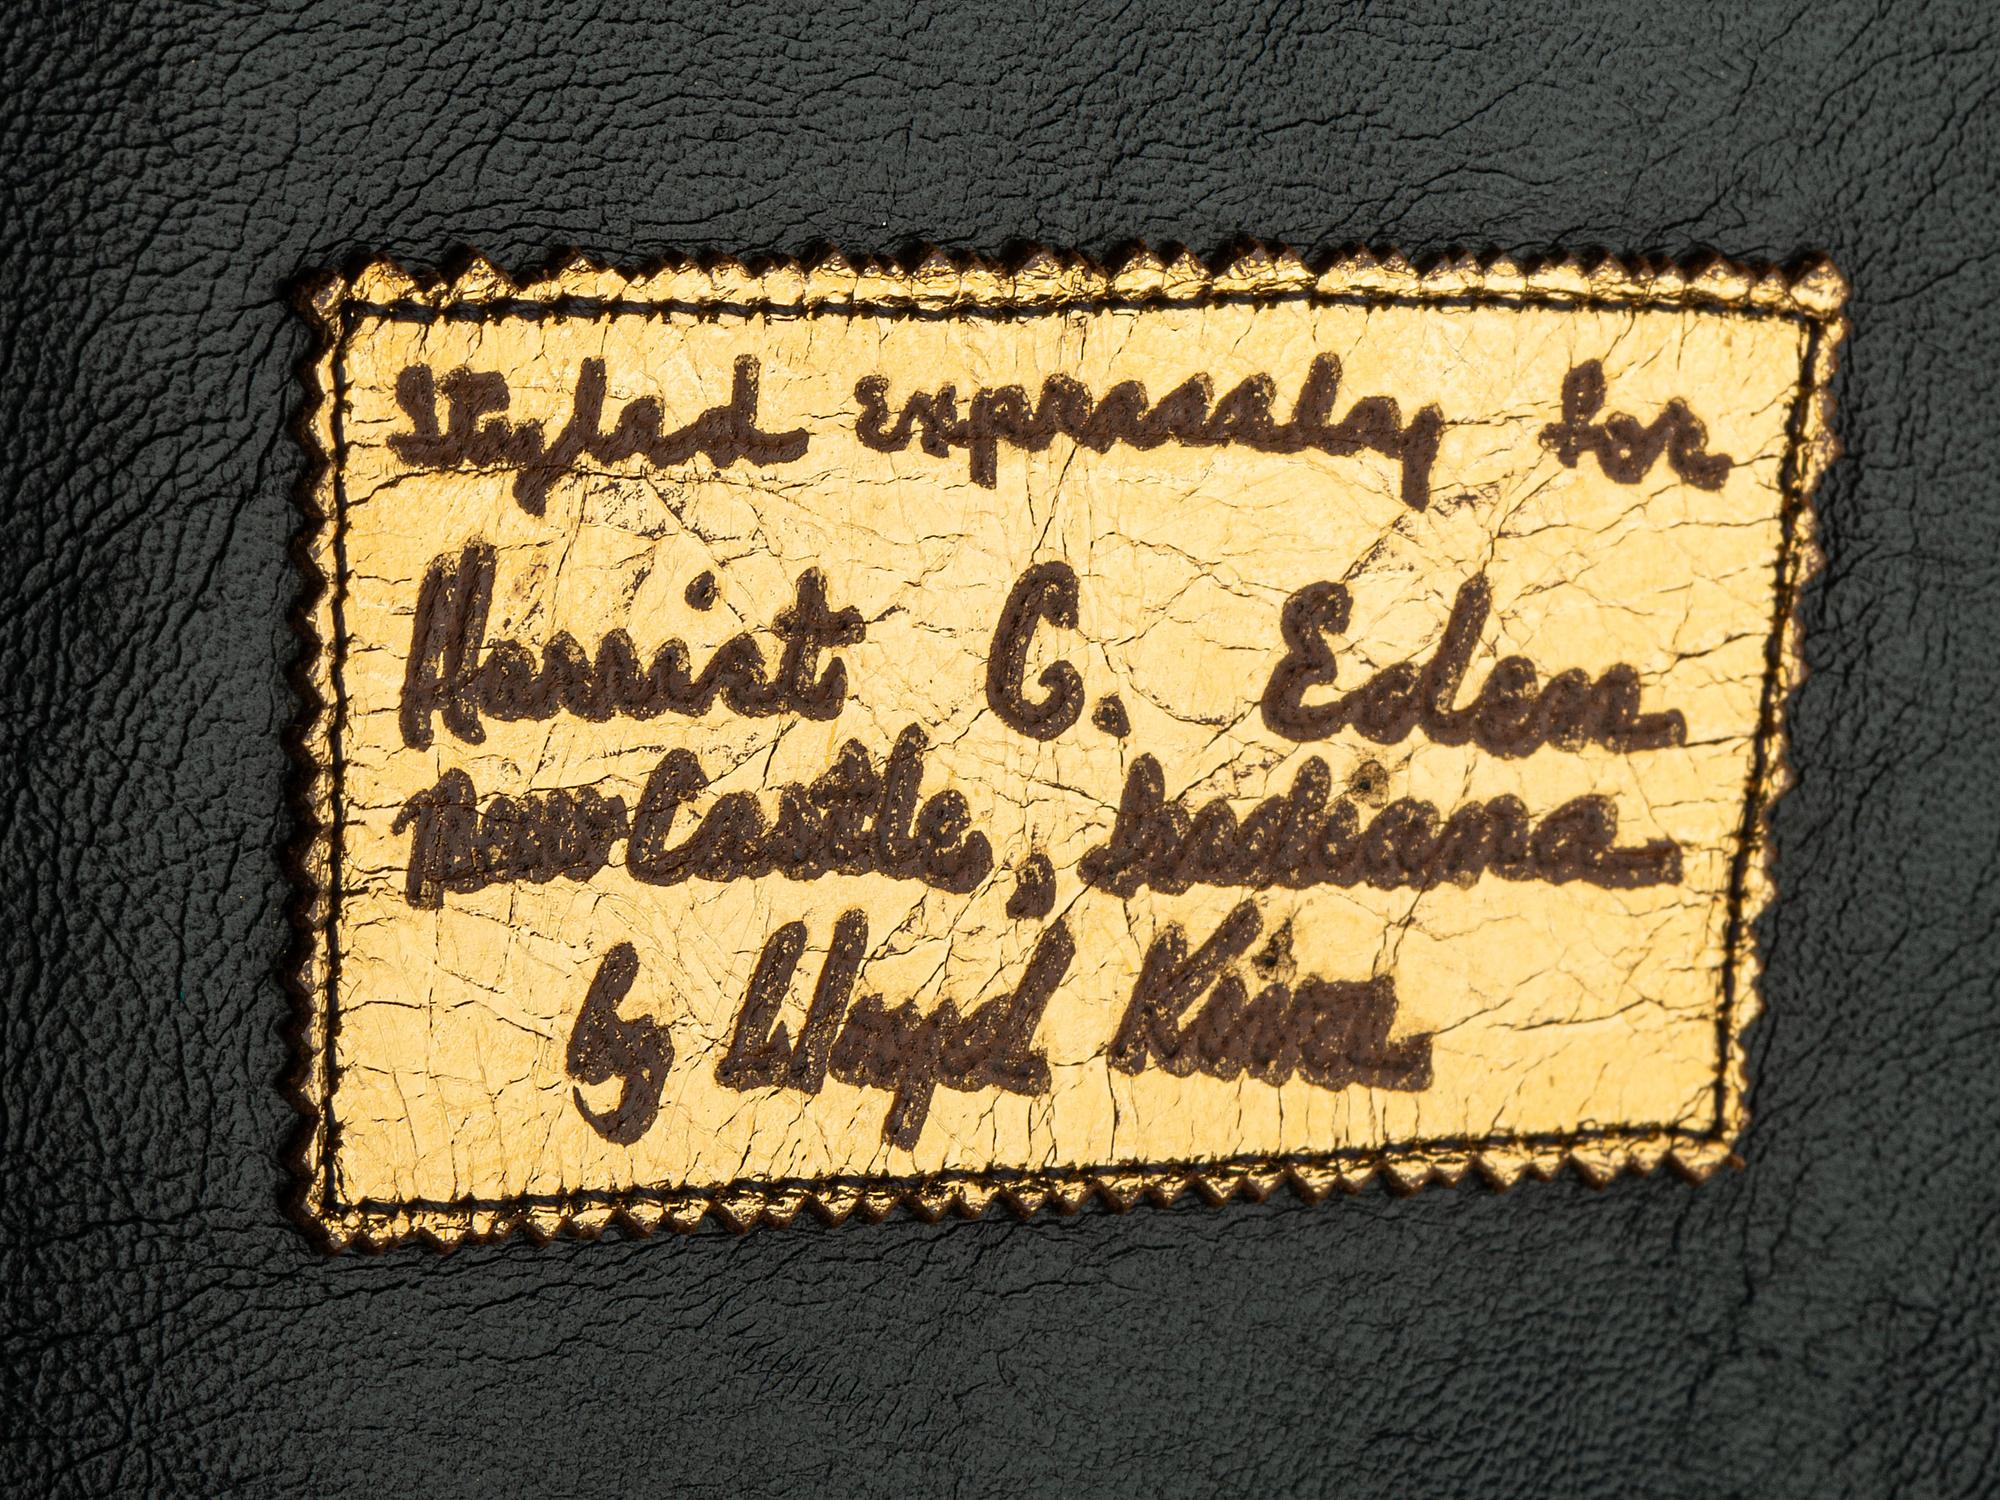 Styled expressly for
Harriet G. Eden
New Castle, Indiana
by Lloyd Kiva